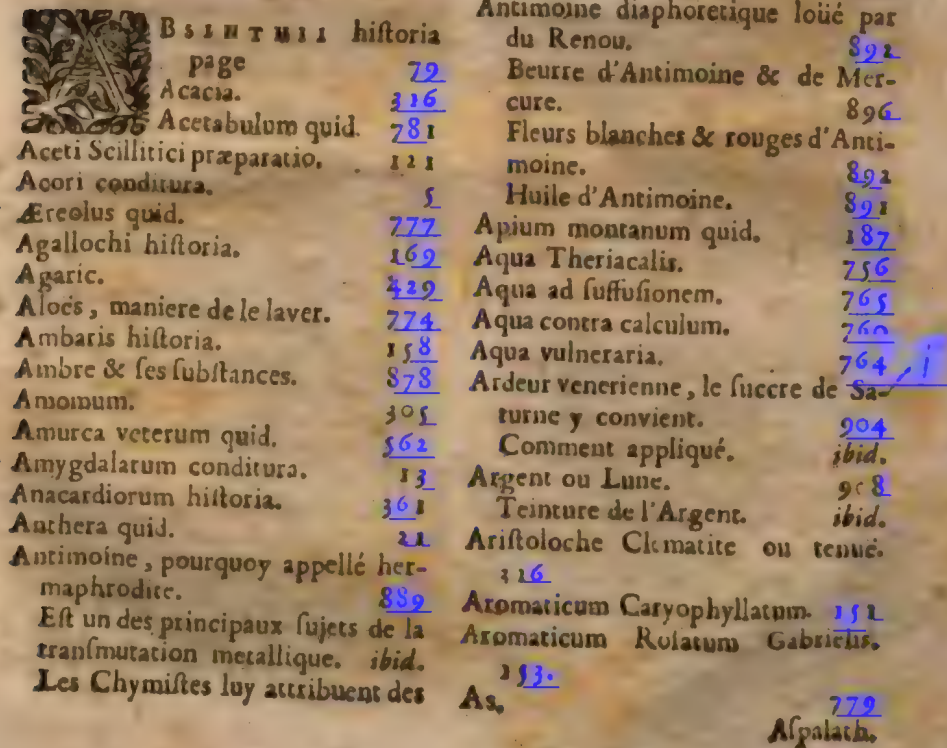 ABSINTHII hiſtoria
page 79
Acacia. 316
Acetabulum quid. 781
Aceti Scillitici præparatio. 121
Acori conditura. 5
Æreolus quid. 777
Agallochi hiſtoria. 169
Agaric. 429
Aloës, maniere de le laver. 774
Ambaris hiſtoria. 158
Ambre & ſes ſubſtances. 878
Amomum. 305
Amurca veterum quid. 562
Amygdalarum conditura. 13
Anacardiorum hiſtoria. 361
Anthera quid. 21
Antimoine, pourquoy appellé her-
maphrodite. 889
Eſt un des principaux ſujets de la
tranſmutation metallique. ibid.
Les Chymiſtes luy attribuent des
Antimoine diaphoretique loüé par
du Renou. 892
Beurre d'Antimoine & de Mer-
cure. 896
Fleurs blanches & rouges d'Anti-
moine. 892
Huile d'Antimoine. 891
Apium montanum quid. 187
Aqua Theriacalis. 756
Aqua ad ſuffuſionem. 765
Aqua contra calculum. 760
Aqua vulneraria. 764
Ardeur venerienne, le ſuccre de Sa-
turne y convient. 904
Comment appliqué. ibid.
Argent ou Lune. 908
Teinture de l'Argent. ibid.
Ariſtoloche Clematite ou tenuë.
316
Aromaticum Caryophyllatum. 152
Aromaticum Roſatum Gabrielis.
153.
As, 779
Aſpalath.